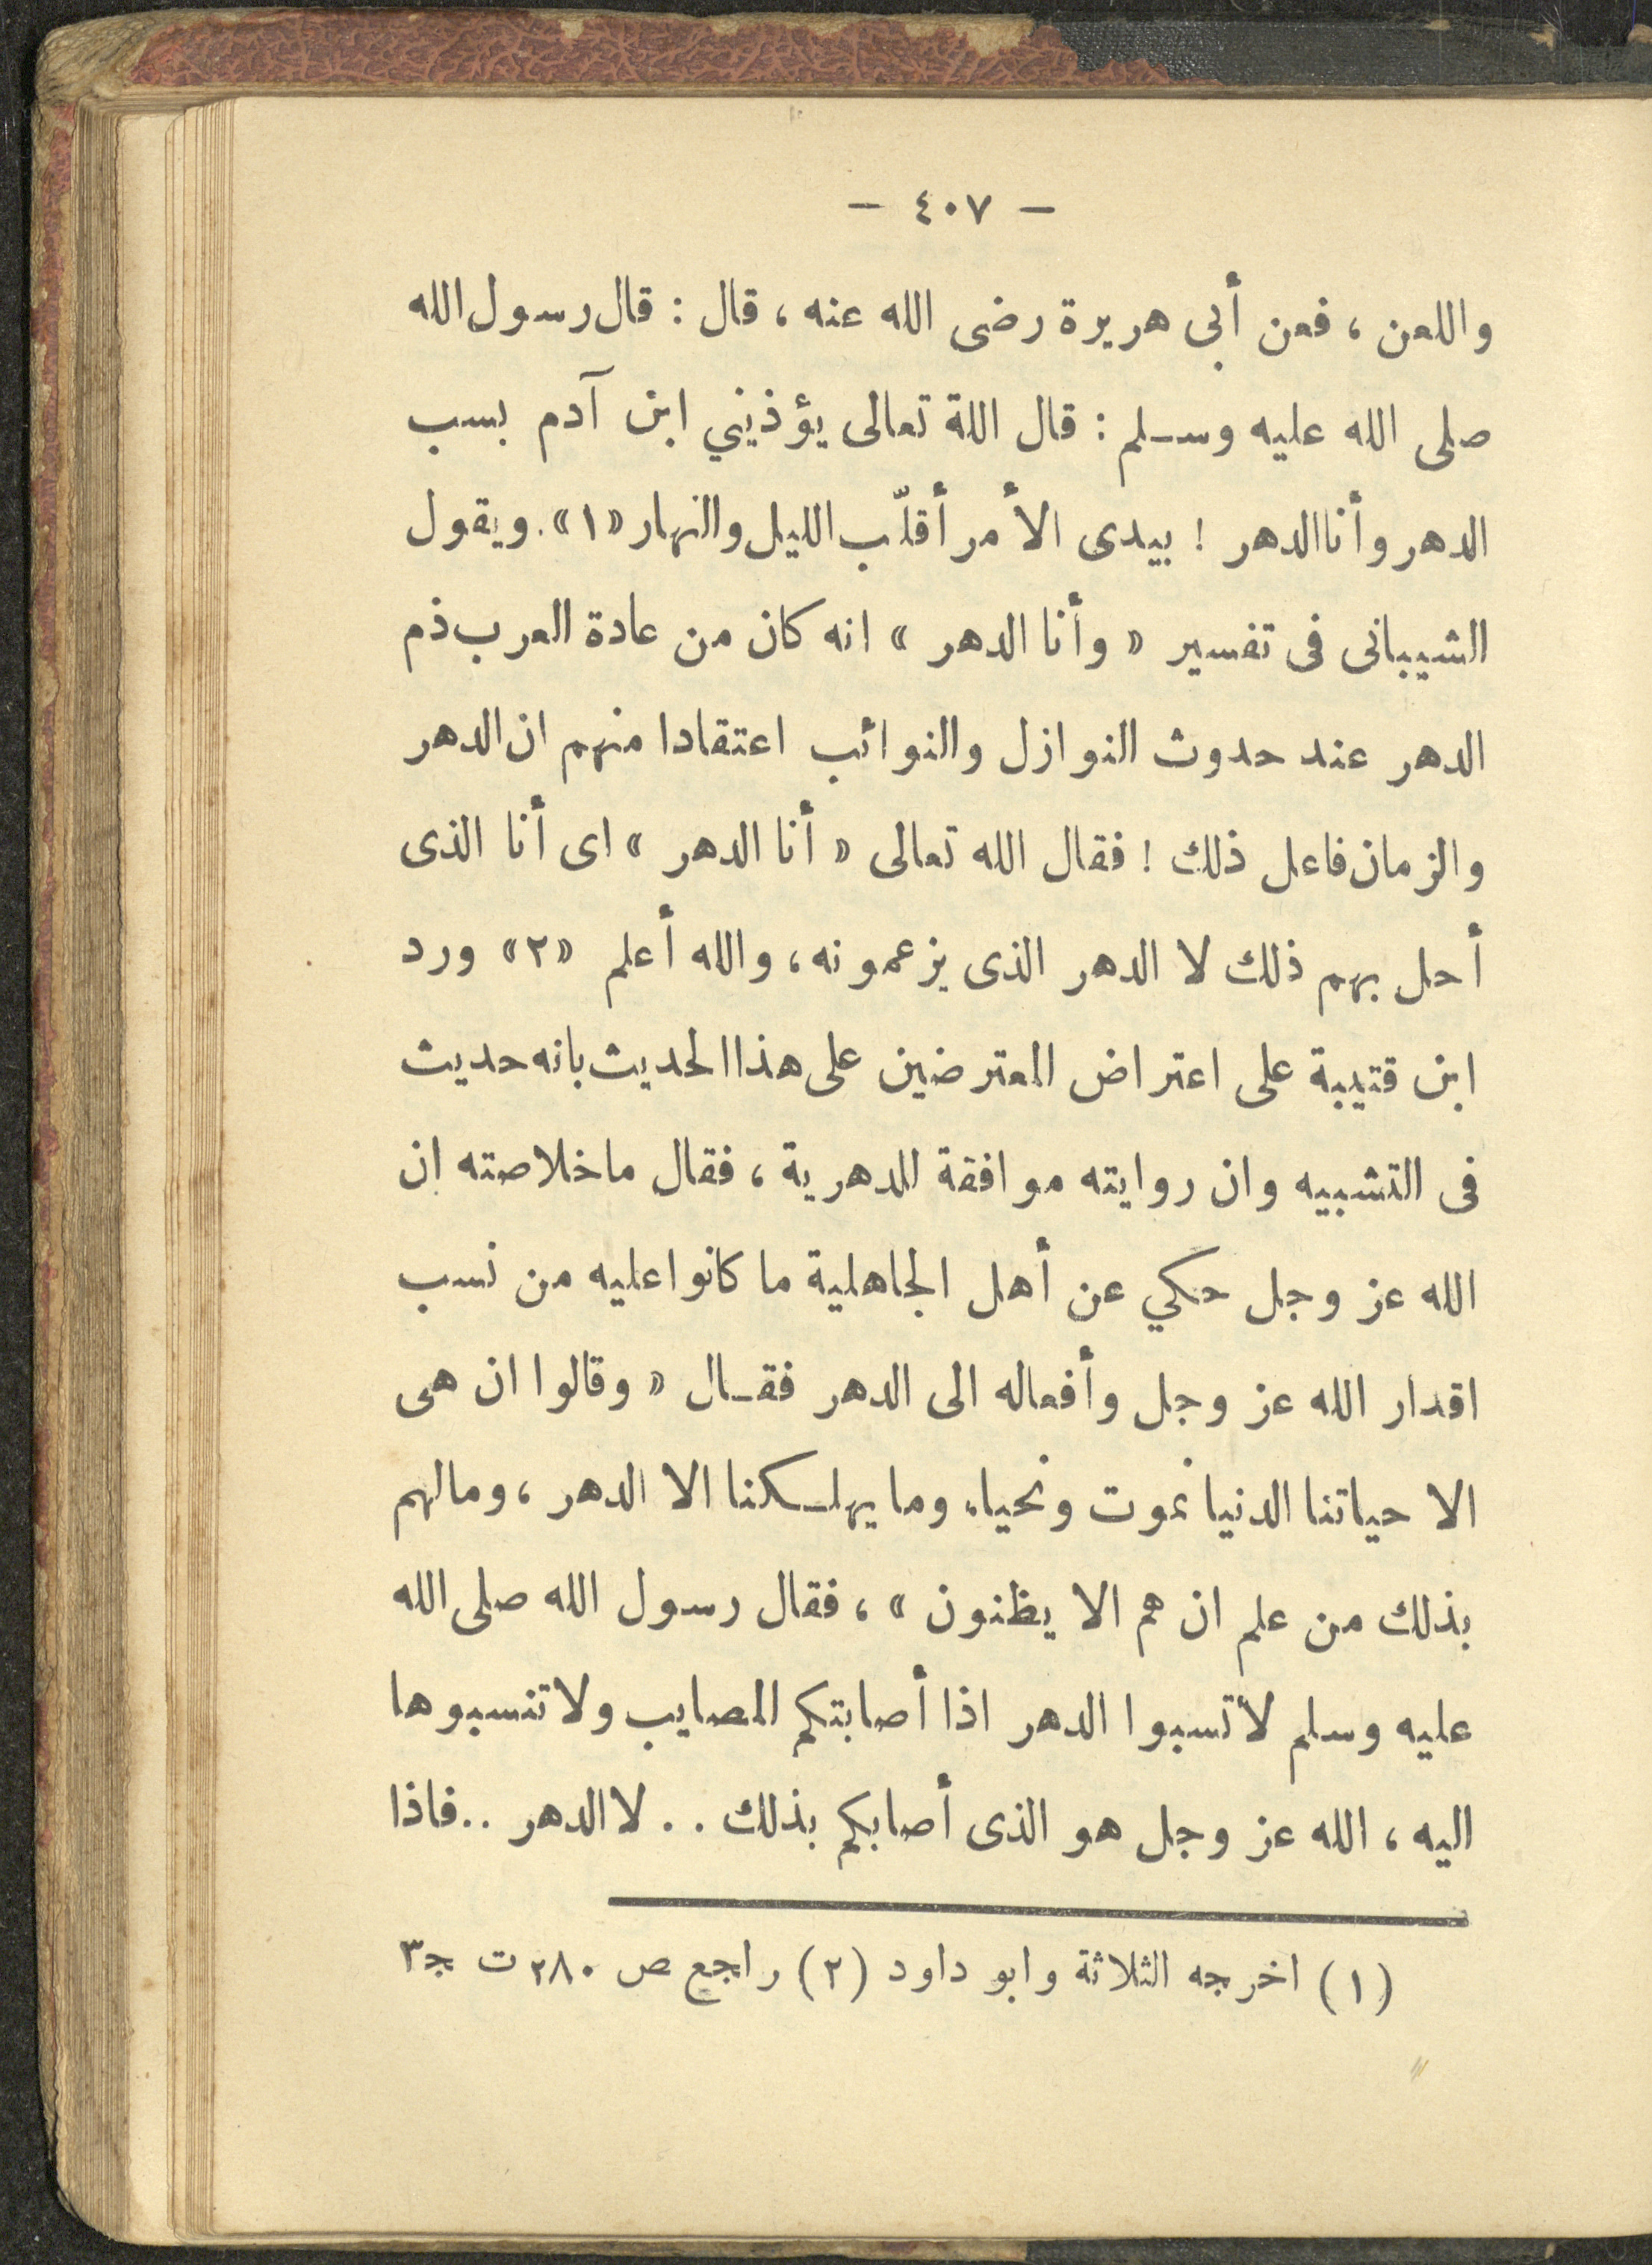 — ٤٠٧ —
واللعن ، فعن أبى هريرة رضى الله عنه ، قال : قال رسول الله
صلى الله عليه وسـلم : قال اللة تعالى يؤذيني ابن آدم بسب
الدهر وأنا الدهر ! بيدى الأمر أقلّب الليل والنهار «١». ويقول
الشيبانى فى تفسير « وأنا الدهر » انه كان من عادة العرب ذم
الدهر عند حدوث النوازل والنوائب اعتقادا منهم ان الدهر
والزمان فاعل ذلك ! فقال الله تعالى « أنا الدهر » اى أنا الذى
أحل بهم ذلك لا الدهر الذى يزعمونه ، والله أعلم «٢» ورد
ابن قتيبة على اعتراض المعترضين على هذا الحديث بانه حديث
فى التشبيه وان روايته موافقة للدهرية ، فقال ما خلاصته ان
الله عز وجل حكي عن أهل الجاهلية ما كانوا عليه من نسب
اقدار الله عز وجل وأفعاله الى الدهر فقـال « وقالوا ان هى
الا حياتنا الدنيا نموت ونحيا، وما يهلـكنا الا الدهر ، ومالهم
بذلك من علم ان هم الا يظنون » ، فقال رسول الله صلى الله
عليه وسلم لاتسبوا الدهر اذا أصابتكم المصايب ولا تنسبوها
اليه ، الله عز وجل هو الذى أصابكم بذلك . . لا الدهر . . فاذا
(١) اخرجه الثلاثة وابو داود (٢) راجع ص ٢٨٠ ت ج٣